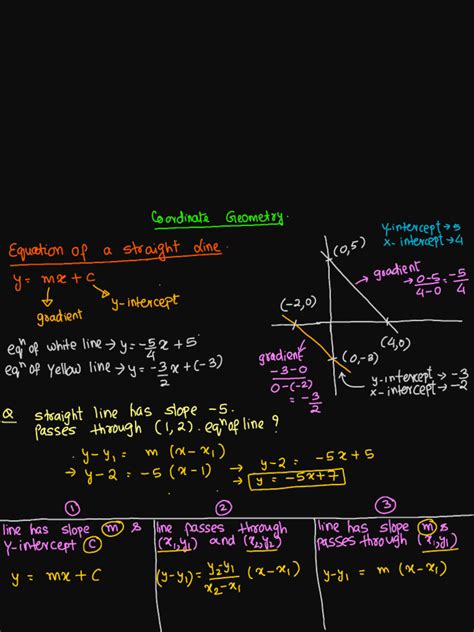 Coordinate Geometry.
Equation of a straight Line.
y = mx + C
gradient
y-intercept
eqⁿ of white line → y = -5/4 x + 5
eqⁿ of Yellow line → y = -3/2 x + (-3)
y-intercept → 5
x-intercept → 4
(0,5)
gradient
→ 0-5/4-0 = -5/4
(-2,0)
(4,0)
(0,-3)
gradient
-3-0/0-(-2)
= -3/2
y-intercept → -3
x-intercept → -2
Q straight line has slope -5.
passes through (1,2). eqⁿ of line ?
y-y₁ = m (x-x₁)
→ y-2 = -5(x-1) → y-2 = -5x+5
→ y = -5x+7
①
line has slope m &
Y-intercept C
y = mx + C
②
line passes through
(x₁,y₁) and (x₂,y₂)
(y-y₁) = y₂-y₁/x₂-x₁ (x-x₁)
③
line has slope m &
passes through (x₁,y₁)
y-y₁ = m (x-x₁)